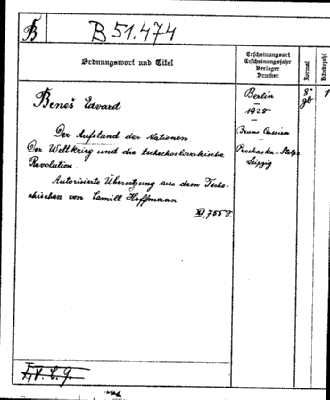 B
B 51.474
Ordnungswort und Titel
Erscheinungsort
Erscheinungsjahr
Verleger
Drucker
Format
Bändezahl
Beneš Edvard
Der Aufstand der Nationen
Der Weltkrieg und die tschechoslovakische
Revolution.
Autorisierte Übersetzung aus dem Tsche-
chischen von Camill Hoffmann
XI, 755 S
Berlin
1928
Bruno Cassirer
Leipzig
8°
gb
1
I, V. 2. g.